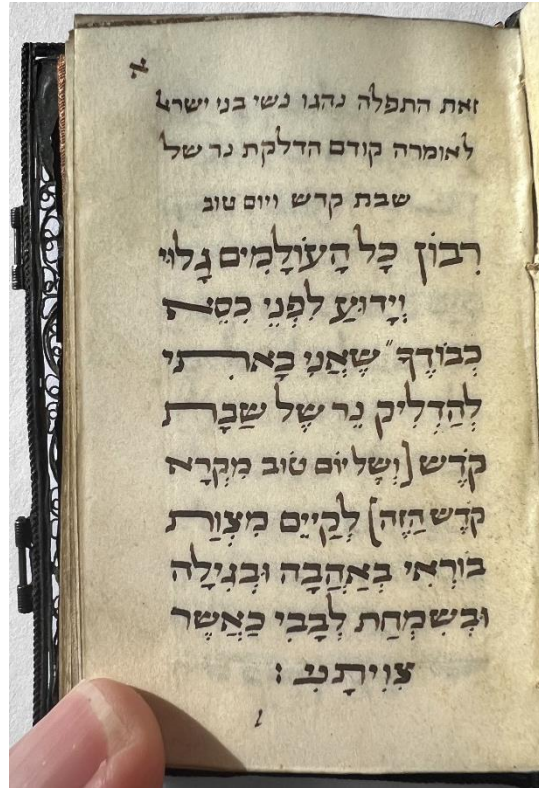 א
זאת התפלה נהגו נשי בני ישראל
לאומרה קודם הדלקת נר של
שבת קדש ויום טוב
רִבּוֹן כָּל הָעוֹלָמִים גָּלוּי
וְיָדוּעַ לִפְנֵי כִסֵּא
כְבוֹדֶךָ שֶׁאֲנִי בָּאתִי
לְהַדְלִיק נֵר שֶׁל שַׁבָּת
קֹדֶשׁ [וְשֶׁל יוֹם טוֹב מִקְרָא
קֹדֶשׁ הַזֶּה] לְקַיֵּים מִצְוַת
בּוֹרְאִי בְּאַהֲבָה וּבְגִילָה
וּבְשִׂמְחַת לְבָבִי כַּאֲשֶׁר
צִוִּיתָנִי :